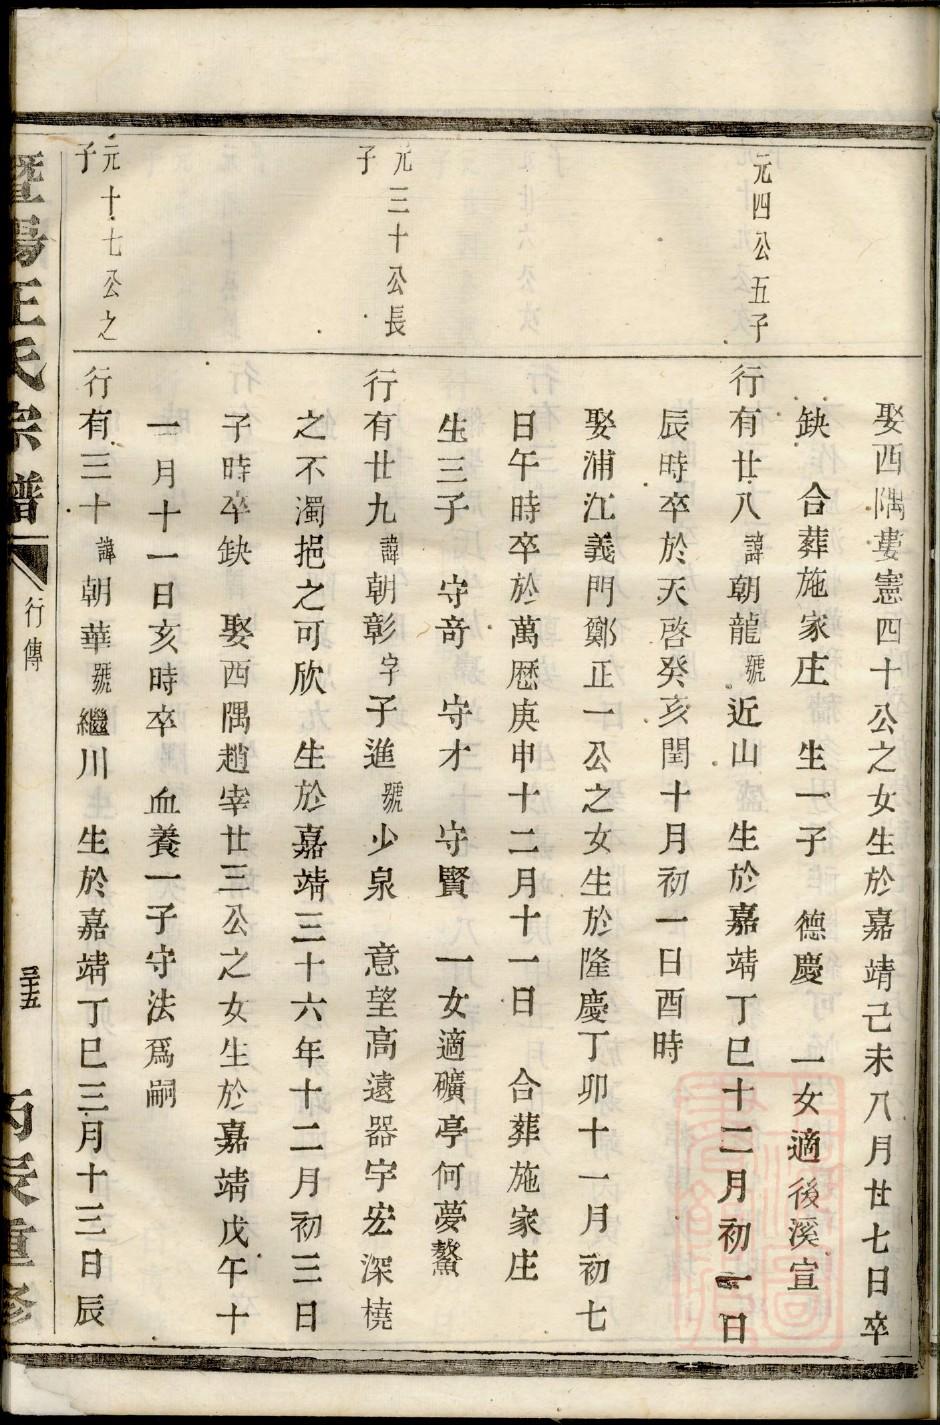 娶西隅婁憲四十公之女生於嘉靖己未八月廿七日卒
缺　合葬施家庄　生一子　德慶　一女適後溪宣
元四公五子
行有廿八諱朝龍號近山　生於嘉靖丁巳十二月初二日
辰時卒於天啓癸亥閏十月初一日酉時
娶浦江義門鄭正一公之女生於隆慶丁卯十一月初七
日午時卒於萬厯庚申十二月十一日　合葬施家庄
生三子　守奇　守才　守賢　一女適礦亭何夢鰲
元三十公長
子
行有廿九諱朝彰字子進號少泉　意望高遠器宇宏深橈
之不濁挹之可欣　生於嘉靖三十六年十二月初三日
子時卒缺　娶西隅趙宰廿三公之女生於嘉靖戊午十
一月十一日亥時卒　血養一子守法爲嗣
元十七公之
子
行有三十諱朝華號繼川　生於嘉靖丁巳三月十三日辰
暨陽王氏宗譜　行傳　三十五　丙辰重修